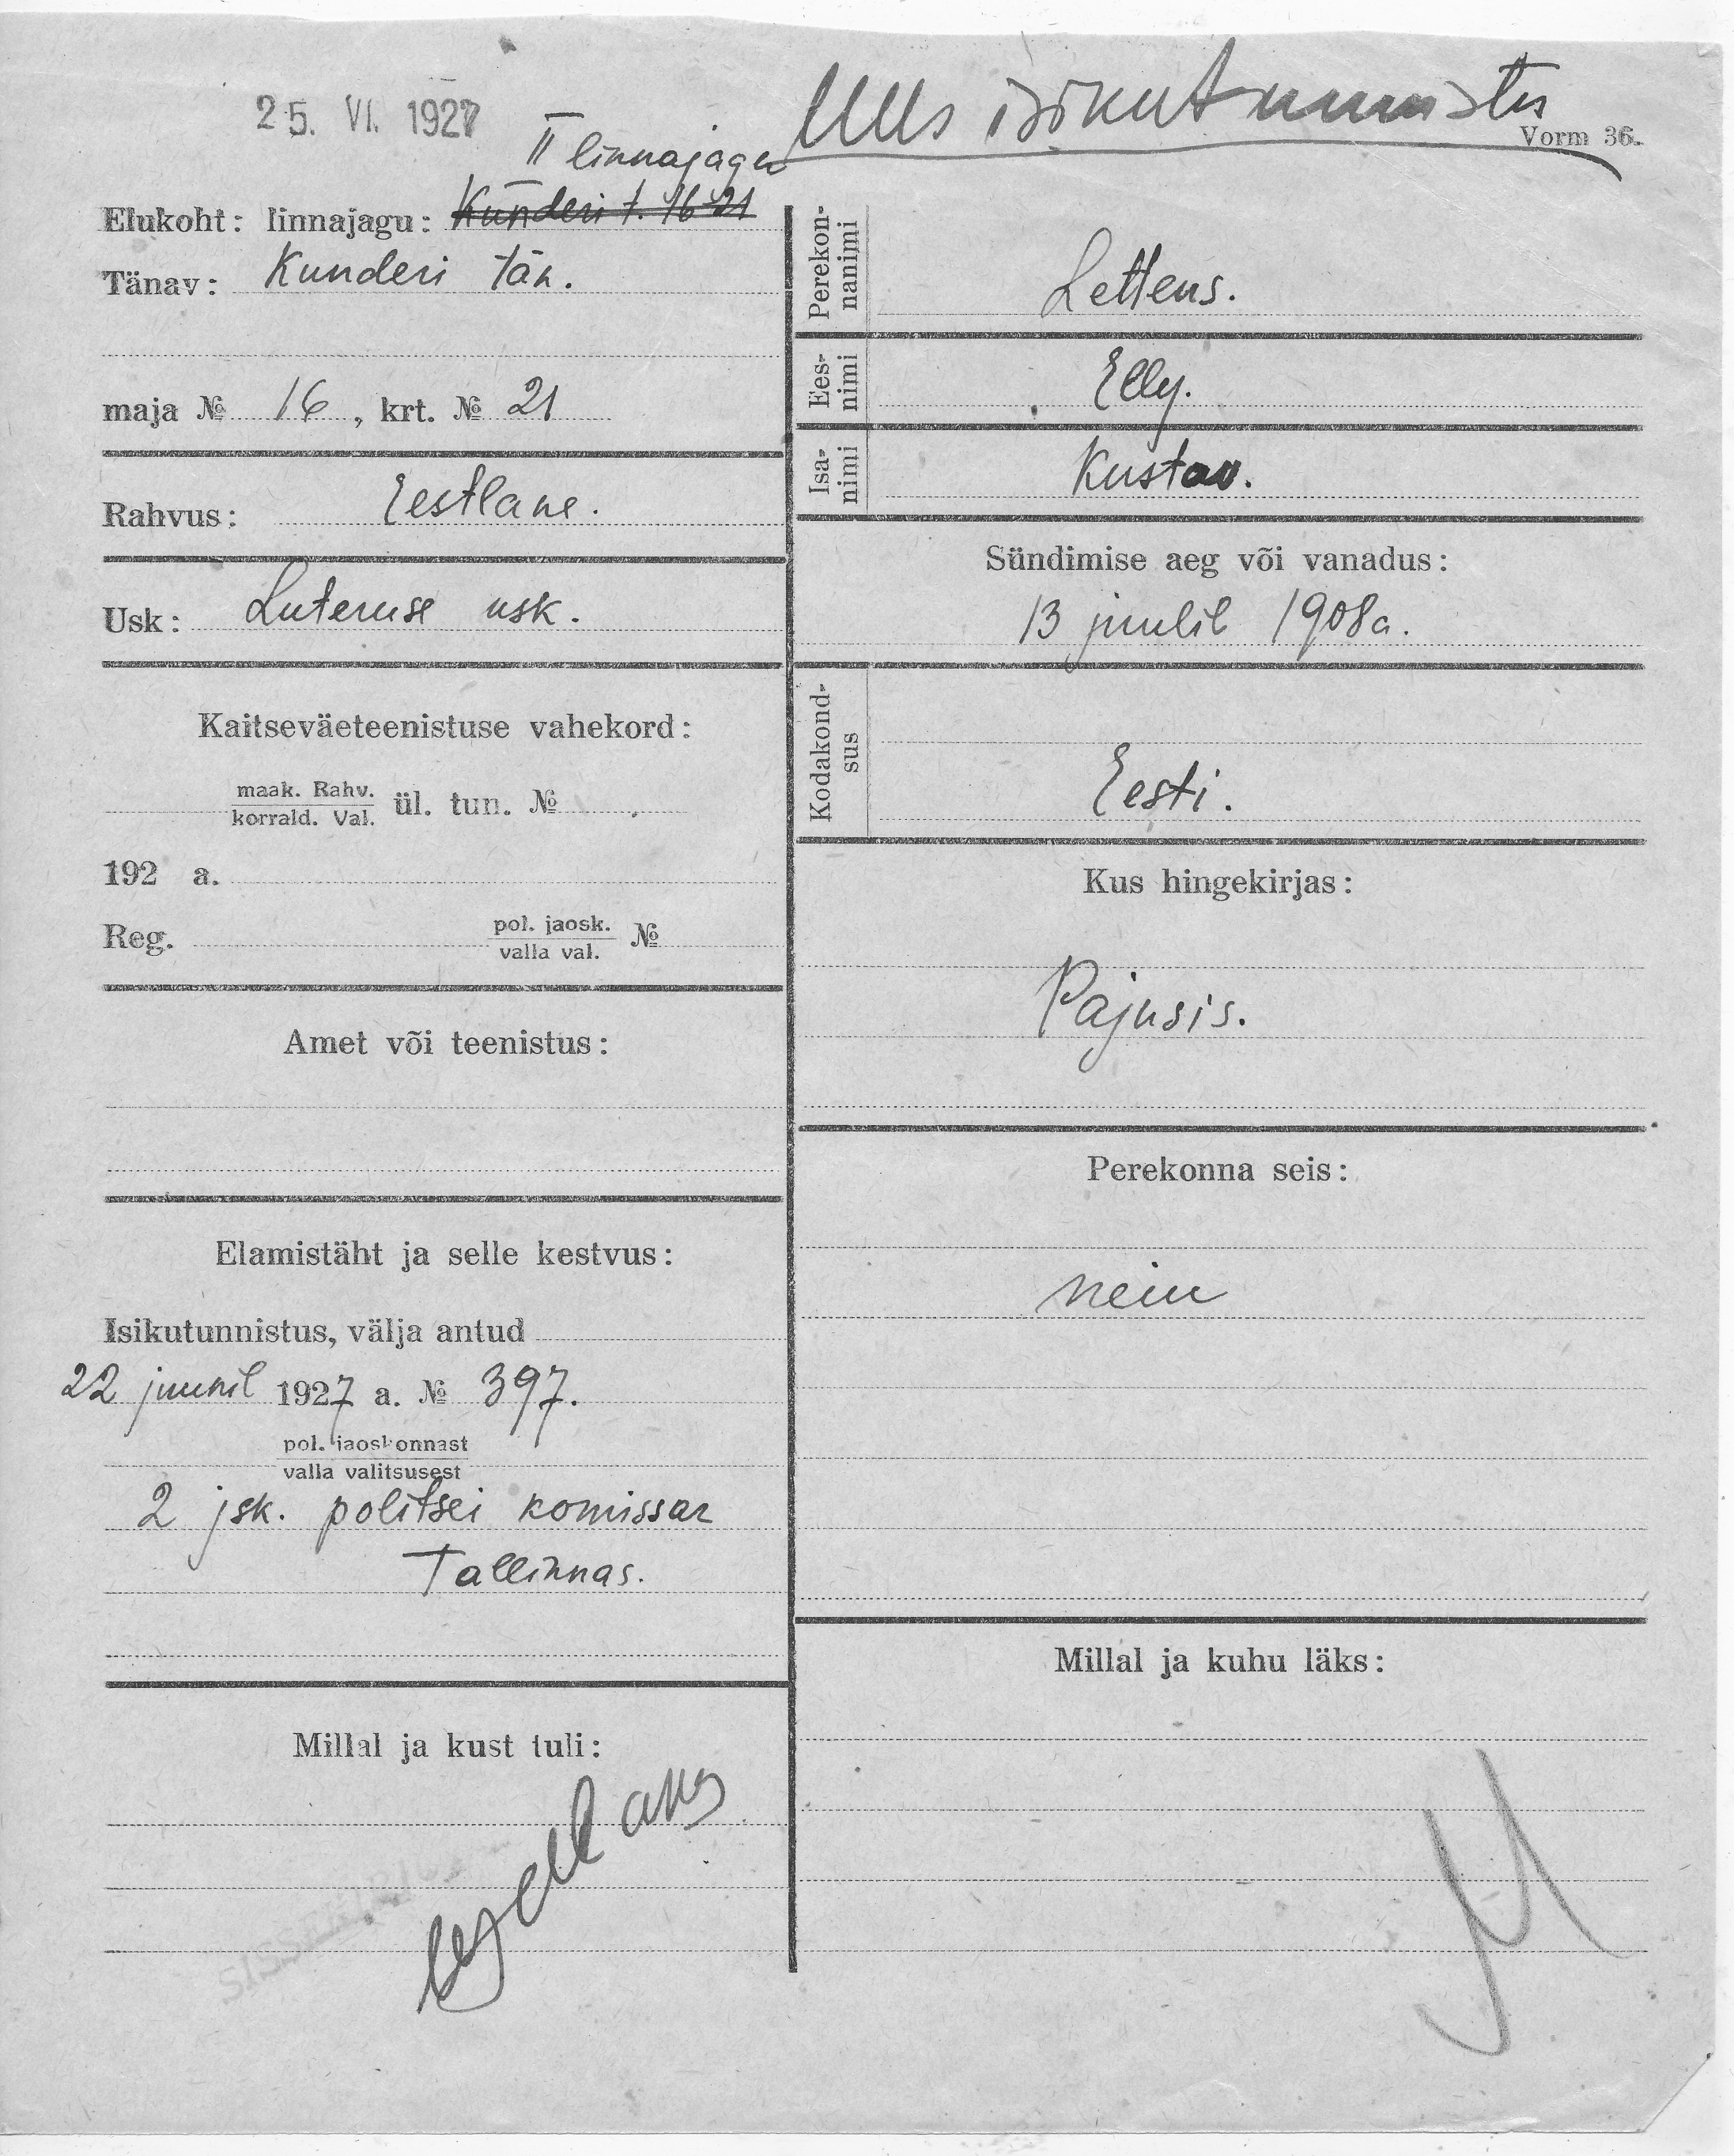 25. VI. 1927
Uus isikutunnistus
Vorm 36.
II linnajagu
Elukoht: linnajagu: Kunderi t. 16-21
Tänav: Kunderi tän.
maja № 16, krt. № 21
Rahvus: Eestlane.
Usk: Luteruse usk.
Kaitseväeteenistuse vahekord:
maak. Rahv.
korrald. Val. ül. tun. №
192 a.
Reg. pol. jaosk.
valla val. №
Amet või teenistus:
Elamistäht ja selle kestvus:
Isikutunnistus, välja antud
22 juunil 1927 a. № 397.
pol. jaoskonnast
valla valitsusest
2 jsk. politsei komissar
Tallinnas.
Millal ja kust tuli:
Perekon-
nanimi
Lettens.
Ees-
nimi
Elly.
Isa-
nimi
Kustav.
Sündimise aeg või vanadus:
13 juulil 1908a.
Kodakond-
sus
Eesti.
Kus hingekirjas:
Pajusis.
Perekonna seis:
neiu
Millal ja kuhu läks: